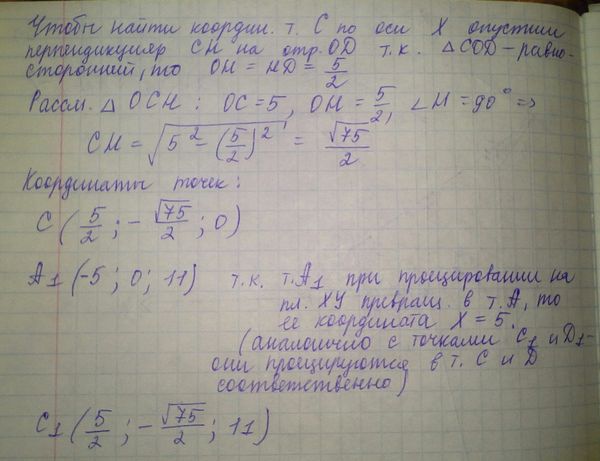 Чтобы найти координ. т. С по оси X опустим
перпендикуляр CH на отр. OD т.к. △COD – равно-
сторонний, то OH = HD = 5/2
Рассм. △ OCH : OC = 5, OH = 5/2, ∠H = 90° =>
CH = √(5² – (5/2)²) = √75/2
Координаты точек :
C (5/2 ; – √75/2 ; 0)
A₁ (-5 ; 0 ; 11) т.к. т.A₁ при проецировании на
пл. XY превращ. в т. A, то
ее координата X = 5.
(аналогично с точками C₁ и D₁ –
они проецируются в т. C и D
соответственно)
C₁ (5/2 ; – √75/2 ; 11)